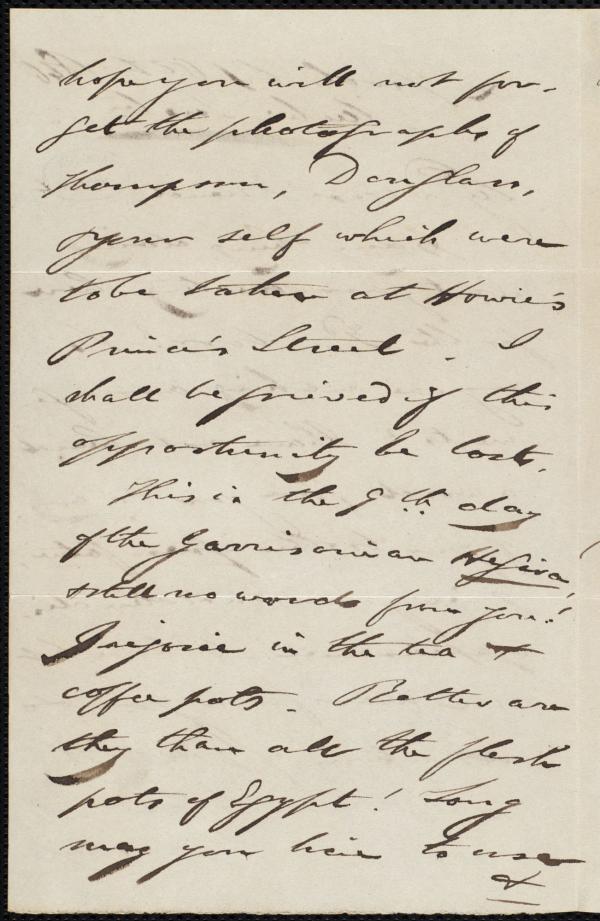 hope you will not for-
get the photographs of
Thompson, Douglass,
& your self which were
to be taken at Howie's
Prince's Street. I
shall be grieved if this
opportunity be lost.
This is the 9th day
of the Garrisonian Hegira,
& still no words from you!
I rejoice in the tea &
coffee pots. Better are
they than all the flesh
pots of Egypt! Long
may you live to use
&